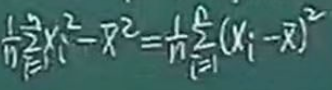 $\frac{1}{n}\sum_{i=1}^{n} x_i^2 - \bar{x}^2 = \frac{1}{n}\sum_{i=1}^{n}(x_i - \bar{x})^2$